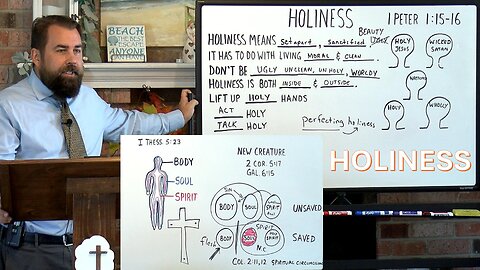 BEACH
THE BEST
ESCAPE
ANYONE
CAN HAVE
HOLINESS 1 PETER 1:15-16
HOLINESS MEANS Set apart, Sanctified, BEAUTY
IT HAS TO DO WITH LIVING MORAL & CLEAN.
DON'T BE UGLY UNCLEAN, UNHOLY, WORLDY
HOLINESS IS BOTH INSIDE & OUTSIDE.
LIFT UP HOLY HANDS
ACT HOLY
TALK HOLY
perfecting holiness
HOLY JESUS
WICKED SATAN
HOLY
WHOLLY
HOLINESS
I THESS 5:23
BODY
SOUL
SPIRIT
NEW CREATURE
2 COR. 5:17
GAL. 6:15
SIN
BODY SOUL SPIRIT
UNSAVED
SPIRIT
flesh BODY SOUL SPIRIT
SAVED
N.C.
COL. 2:11,12 SPIRITUAL CIRCUMCISION